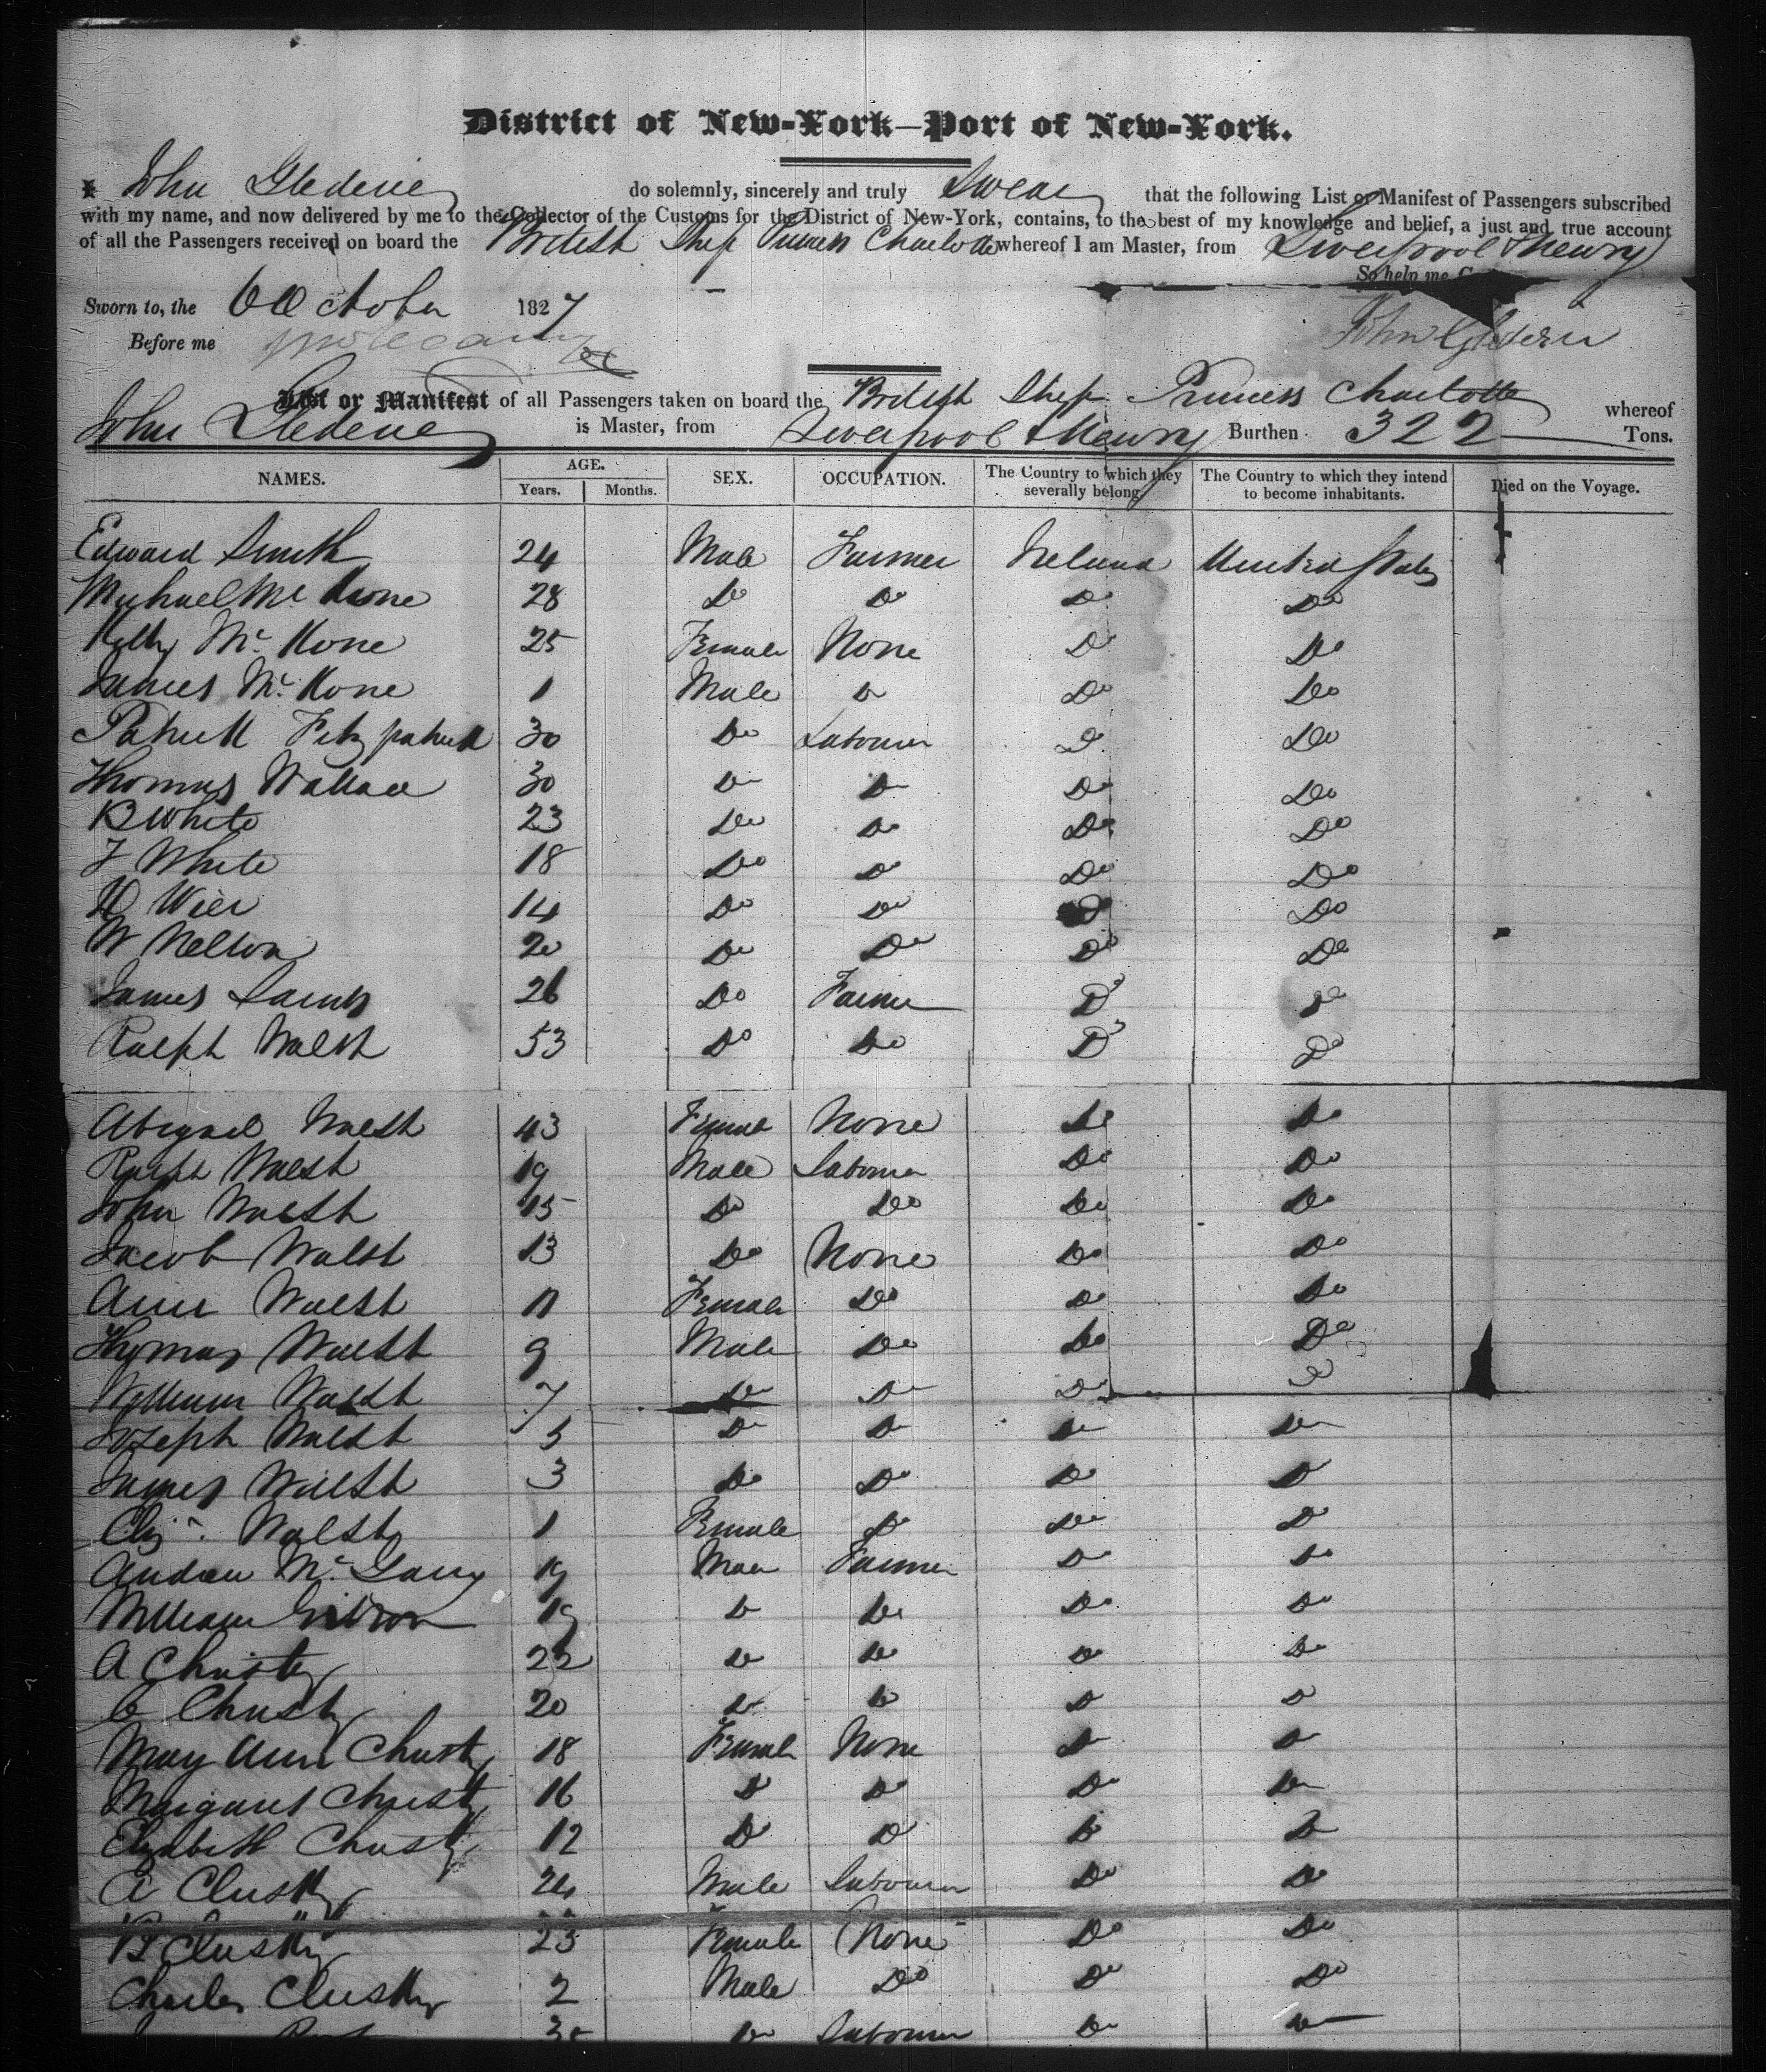 District of New-York—Port of New-York.
I John Gledene do solemnly, sincerely and truly Swear that the following List or Manifest of Passengers subscribed
with my name, and now delivered by me to the Collector of the Customs for the District of New-York, contains, to the best of my knowledge and belief, a just and true account
of all the Passengers received on board the British Ship Princess Charlotte whereof I am Master, from Liverpool & Newry
So help me
Sworn to, the 6 October 1827 John
Before me
List or Manifest of all Passengers taken on board the British Ship Princess Charlotte whereof
John Gledene is Master, from Liverpool & Newry Burthen 322 Tons.
NAMES. AGE. SEX. OCCUPATION. The Country to which they severally belong. The Country to which they intend to become inhabitants. Died on the Voyage.
Years. Months.
Edward Smith 24 Male Farmer Ireland United States
Michael Mc Kone 28 Do Do Do Do
Kelly Mc Kone 25 Female None Do Do
James Mc Kone 1 Male Do Do Do
Patrick Fitzpatrick 30 Do Labourer Do Do
Thomas Wallace 30 Do Do Do Do
B White 23 Do Do Do Do
J White 18 Do Do Do Do
Wier 14 Do Do Do Do
W Nelson 20 Do Do Do Do
James 26 Do Farmer Do Do
Ralph Walsh 53 Do Do Do Do
Abigael Walsh 43 Female None Do Do
Ralph Walsh 19 Male Labourer Do Do
John Walsh 15 Do Do Do Do
Jacob Walsh 13 Do None Do Do
Ann Walsh 11 Female Do Do Do
Thomas Walsh 9 Male Do Do Do
William Walsh 7 Do Do Do Do
Joseph Walsh 5 Do Do Do Do
James Walsh 3 Do Do Do Do
Eliza. Walsh 1 Female Do Do Do
Andrew Mc Garry 19 Male Farmer Do Do
William Gibson 19 Do Do Do Do
A Christy 22 Do Do Do Do
C Christy 20 Do Do Do Do
Mary Ann Christy 18 Female None Do Do
Margaret Christy 16 Do Do Do Do
Elizabeth Christy 12 Do Do Do Do
A Clusky 24 Male Labourer Do Do
B Clusky 23 Female None Do Do
Charles Clusky 2 Male Do Do Do
35 Do Labourer Do Do